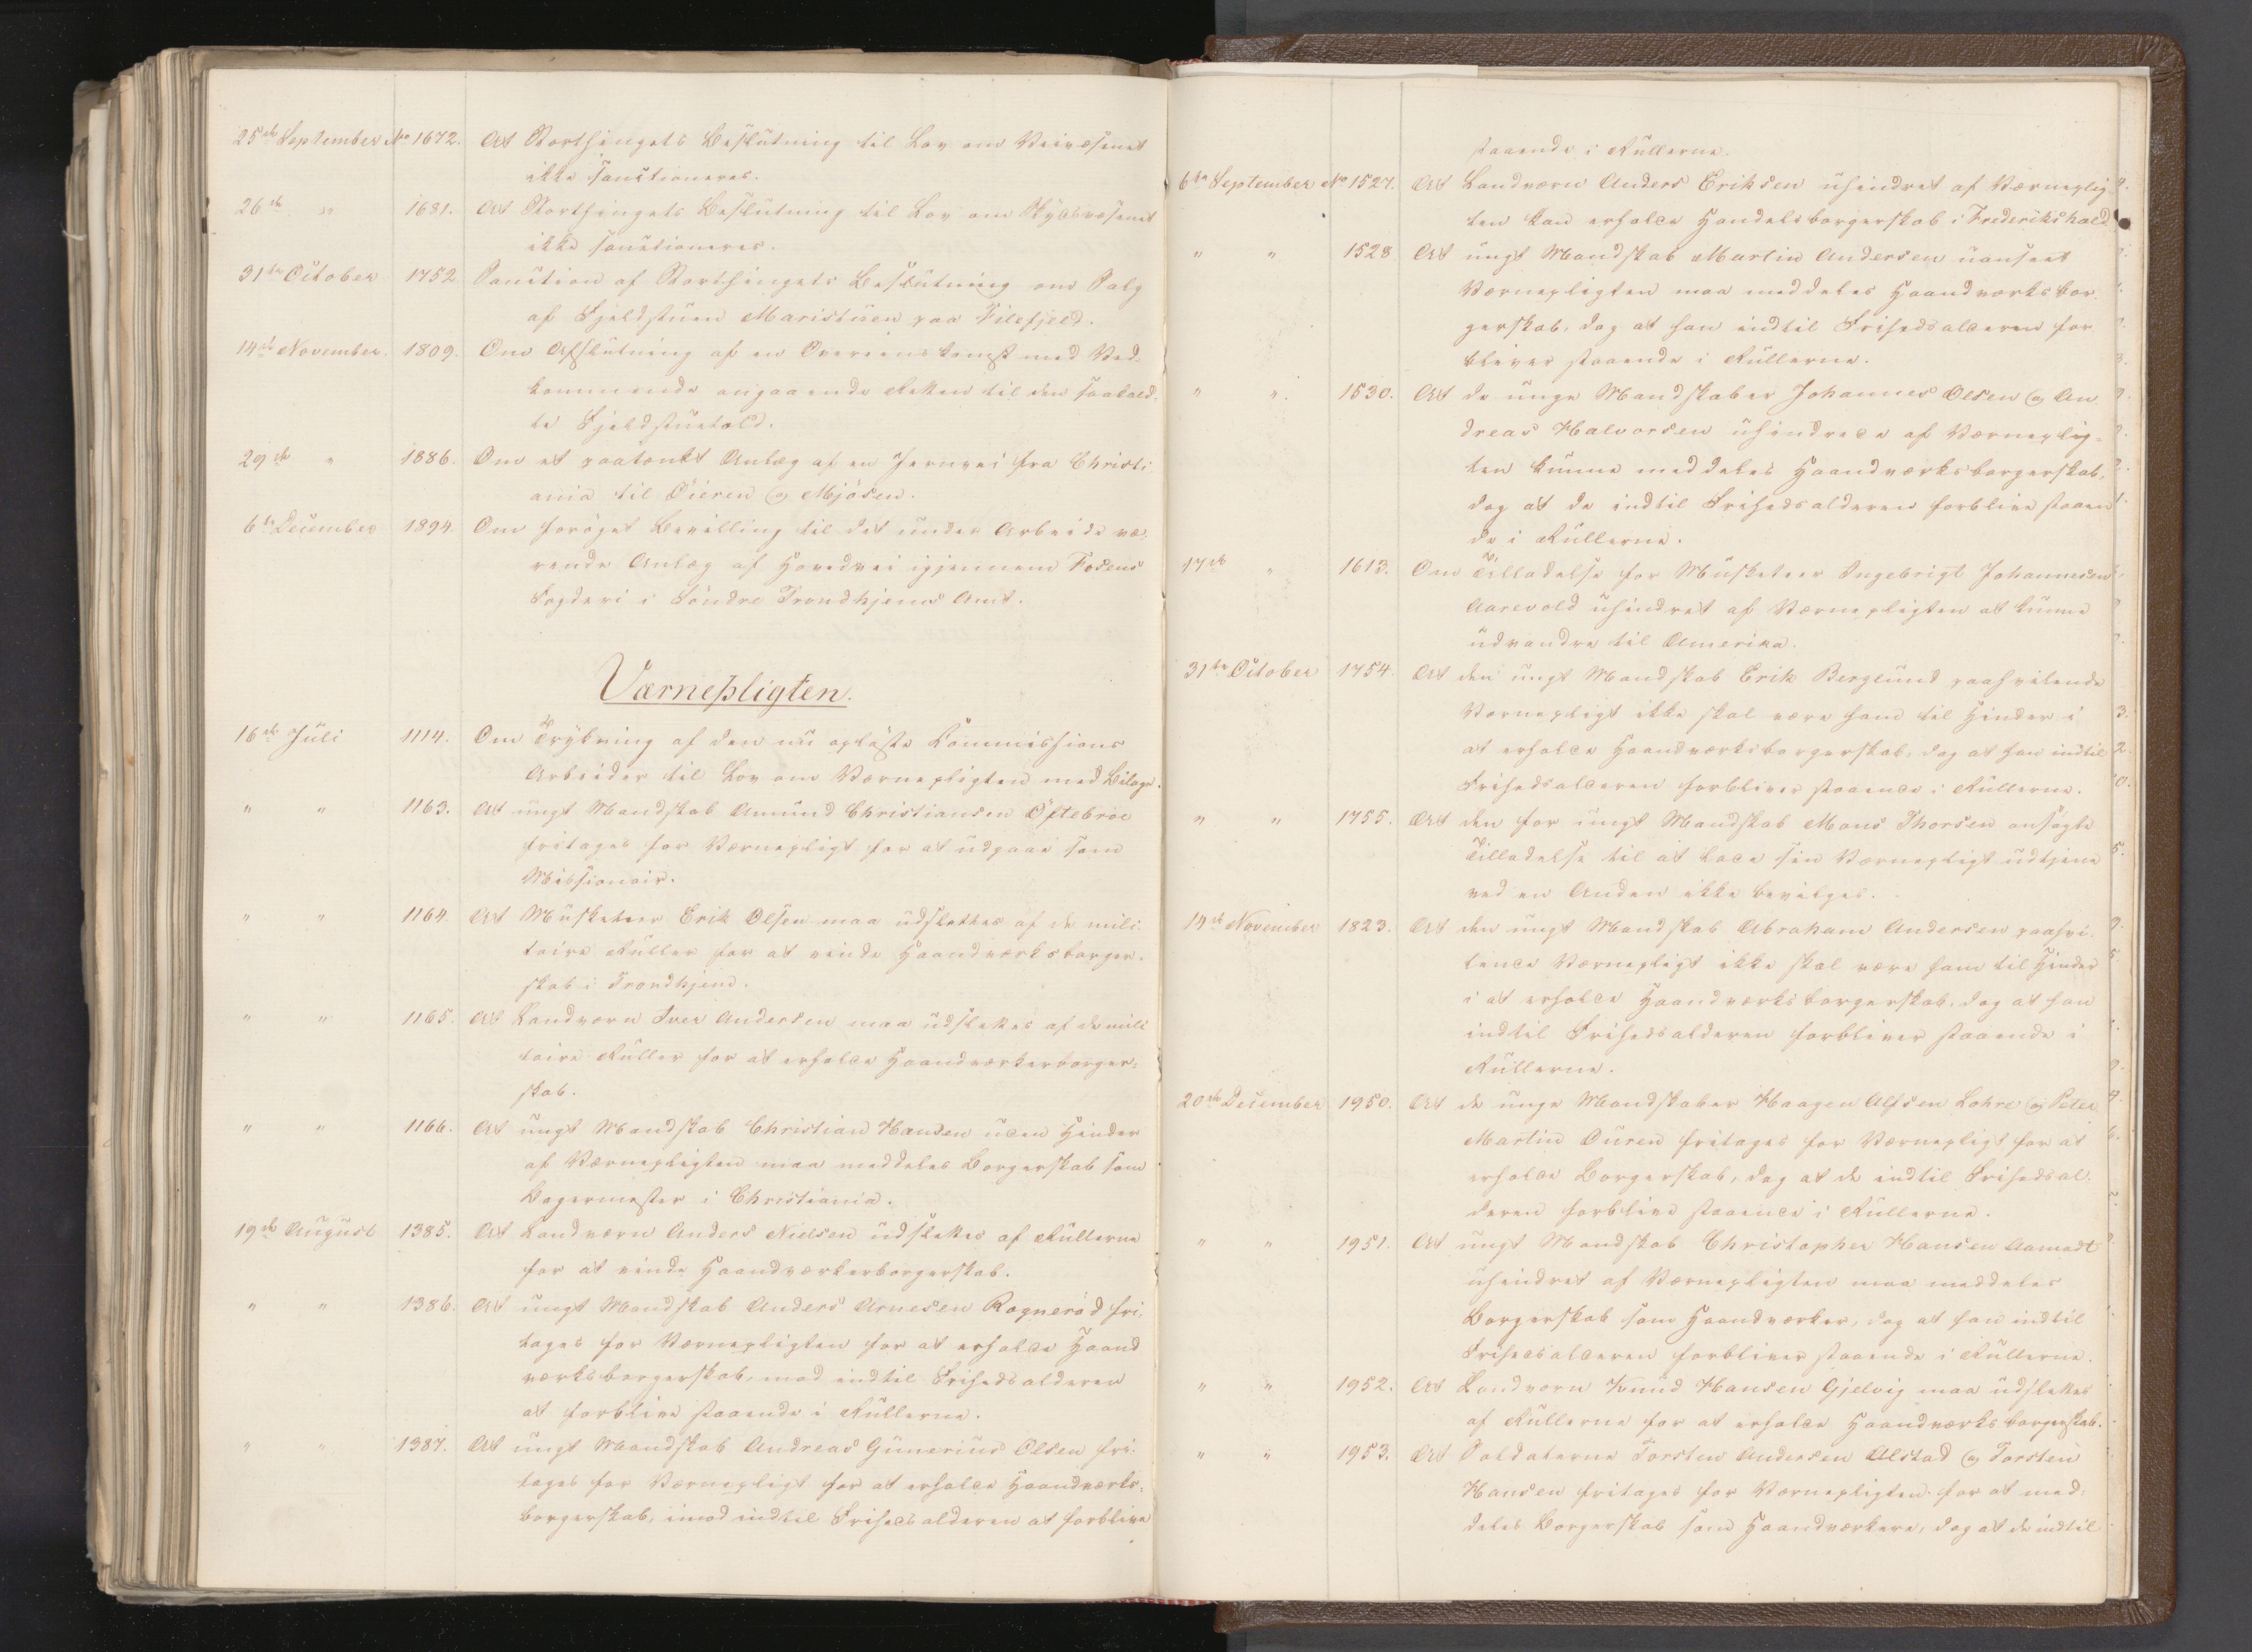 25de September No 1672. At Storthingets Beslutning til Lov om Veivæsenet
ikke sanctioneres.
26de " 1681. At Storthingets Beslutning til Lov om Skydsvæsenet
ikke sanctioneres.
31te October 1752 Sanction af Storthingets Beslutning om Salg
af Fjeldstuen Maristuen paa Filefjeld.
14de November. 1809. Om Afslutning af en Overienskomst med Ved-
kommende angaaende Retten til den saakald-
te Fjeldstuetold.
29de " 1886. Om et paatænkt Anlæg af en Jernvei fra Christi-
ania til Öieren og Mjösen.
6te December 1894. Om foröget Bevilling til det under Arbeide væ-
rende Anlæg af Hovedvei igjennem Fosens
Fogderi i Söndre Trondhjems Amt.
Værnepligten.
16de Juli 1114. Om Trykning af den nu oplöste Commissions
Arbeider til Lov om Værnepligten med Bilage.
" " 1163. At ungt Mandskab Amund Christiansen Öftebroe
fritages for Værnepligt for at udgaae som
Missionair.
" " 1164. At Musketeer Erik Olsen maa udslettes af de mili-
taire Ruller for at vinde Haandværksborger-
skab i Trondhjem.
" " 1165. At Landværn Iver Andersen maa udslettes af de mili
taire Ruller for at erholde Haandværkerborger-
skab.
" " 1166. At ungt Mandskab Christian Hansen uden Hinder
af Værnepligten maa meddeles Borgerskab som
Bagermester i Christiania.
19de August 1385. At Landværn Anders Nielsen udslettes af Rullerne
for at vinde Haandværkerborgerskab.
" " 1386. At ungt Mandskab Anders Arnesen Rogneröd fri-
tages for Værnepligten for at erholde Haand
værksborgerskab, mod indtil Frihedsalderen
at forblive staaende i Rullerne.
" " 1387. At ungt Mandskab Andreas Gunerius Olsen fri-
tages for Værnepligt for at erholde Haandværks-
borgerskab, imod indtil Frihedsalderen at forblive
staaende i Rullerne.
6te September No 1527. At Landværn Anders Eriksen uhindret af Værneplig-
ten kan erholde Handelsborgerskab i Frederikshald
" " 1528 At ungt Mandskab Martin Andersen uanseet
Værnepligten maa meddeles Haandværksbor-
gerskab, dog at han indtil Frihedsalderen for-
bliver staaende i Rullerne.
" " 1530. At de unge Mandskaber Johannes Olsen og An-
dreas Halvorsen uhindrede af Værneplig-
ten kunne meddeles Haandværksborgerskab,
dog at de indtil Frihedsalderen forblive staaen
de i Rullerne.
17de " 1613. Om Tilladelse for Musketeer Ingebrigt Johannesen
Aarevold uhindret af Værnepligten at kunne
udvandre til Amerika.
31te October 1754. At den ungt Mandskab Erik Berglund paahvilende
Værnepligt ikke skal være ham til Hinder i
at erholde Haandværksborgerskab, dog at han indtil
Frihedsalderen forbliver staaende i Rullerne.
" " 1755. At den for ungt Mandskab Mons Thorsen ansögte
Tilladelse til at lade sin Værnepligt udtjene
ved en Anden ikke bevilges.
14de November 1823. At den ungt Mandskab Abraham Andersen paahvi-
lende Værnepligt ikke skal være ham til Hinder
i at erholde Haandværksborgerskab, dog at han
indtil Frihedsalderen forbliver staaende i
Rullerne.
20de December 1950. At de unge Mandskaber Haagen Alfsen Lohre og Peter
Martin Duren fritages for Værnepligt for at
erholde Borgerskab, dog at de indtil Frihedsal-
deren forblive staaende i Rullerne.
" " 1951. At ungt Mandskab Christopher Hansen Aamodt
uhindret af Værnepligten maa meddeles
Borgerskab som Haandværker, dog at han indtil
Frihedsalderen forbliver staaende i Rullerne.
" " 1952. At Landværn Knud Hansen Gjelvig maa udslettes
af Rullerne for at erholde Haandværksborgerskab.
" " 1953. At Soldaterne Torsten Andersen Alstad og Torsten
Hansen fritages for Værnepligten for at med-
deles Borgerskab som Haandværkere, dog at de indtil